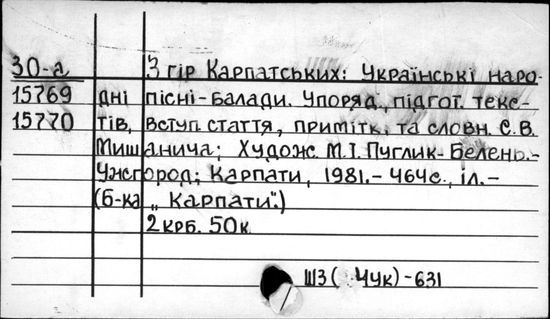 30-а З гір Карпатських: Українські наро-
15769 дні пісні-балади. Упоряд., підгот. текс-
15770 тів, вступ. стаття, приміт. та словн. С.В.
Мишанича; Худож. М.І. Пуглик-Белень.-
Ужгород: Карпати, 1981.- 464с., іл.-
(Б-ка „Карпати".)
2 крб. 50к.
Ш3( 4Ук)-631